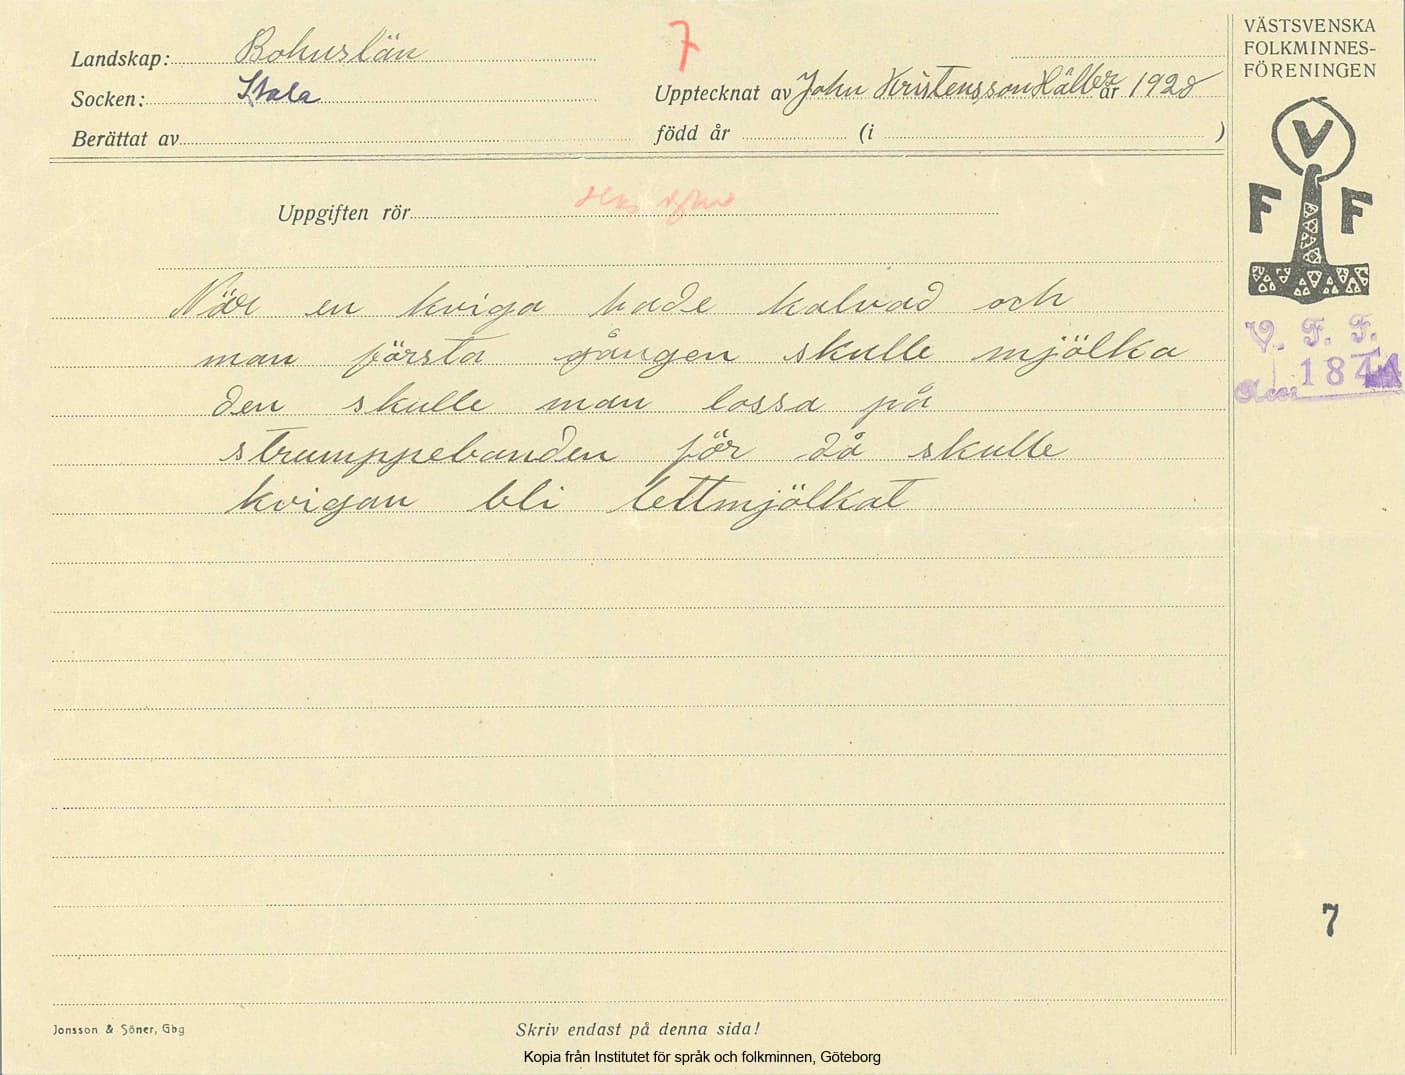 Landskap: Bohuslän
7
Socken: Stala
Upptecknat av John Kristensson Hälle år 1928
Berättat av
född år (i )
Uppgiften rör
När en kviga hade kalvad och
man första gången skulle mjölka
den skulle man lossa på
strumppebanden för då skulle
kvigan bli lettmjölkat
VÄSTSVENSKA
FOLKMINNES-
FÖRENINGEN
V
F F
V. F. F.
Acc: 184
7
Jonsson & Söner, Gbg
Skriv endast på denna sida!
Kopia från Institutet för språk och folkminnen, Göteborg